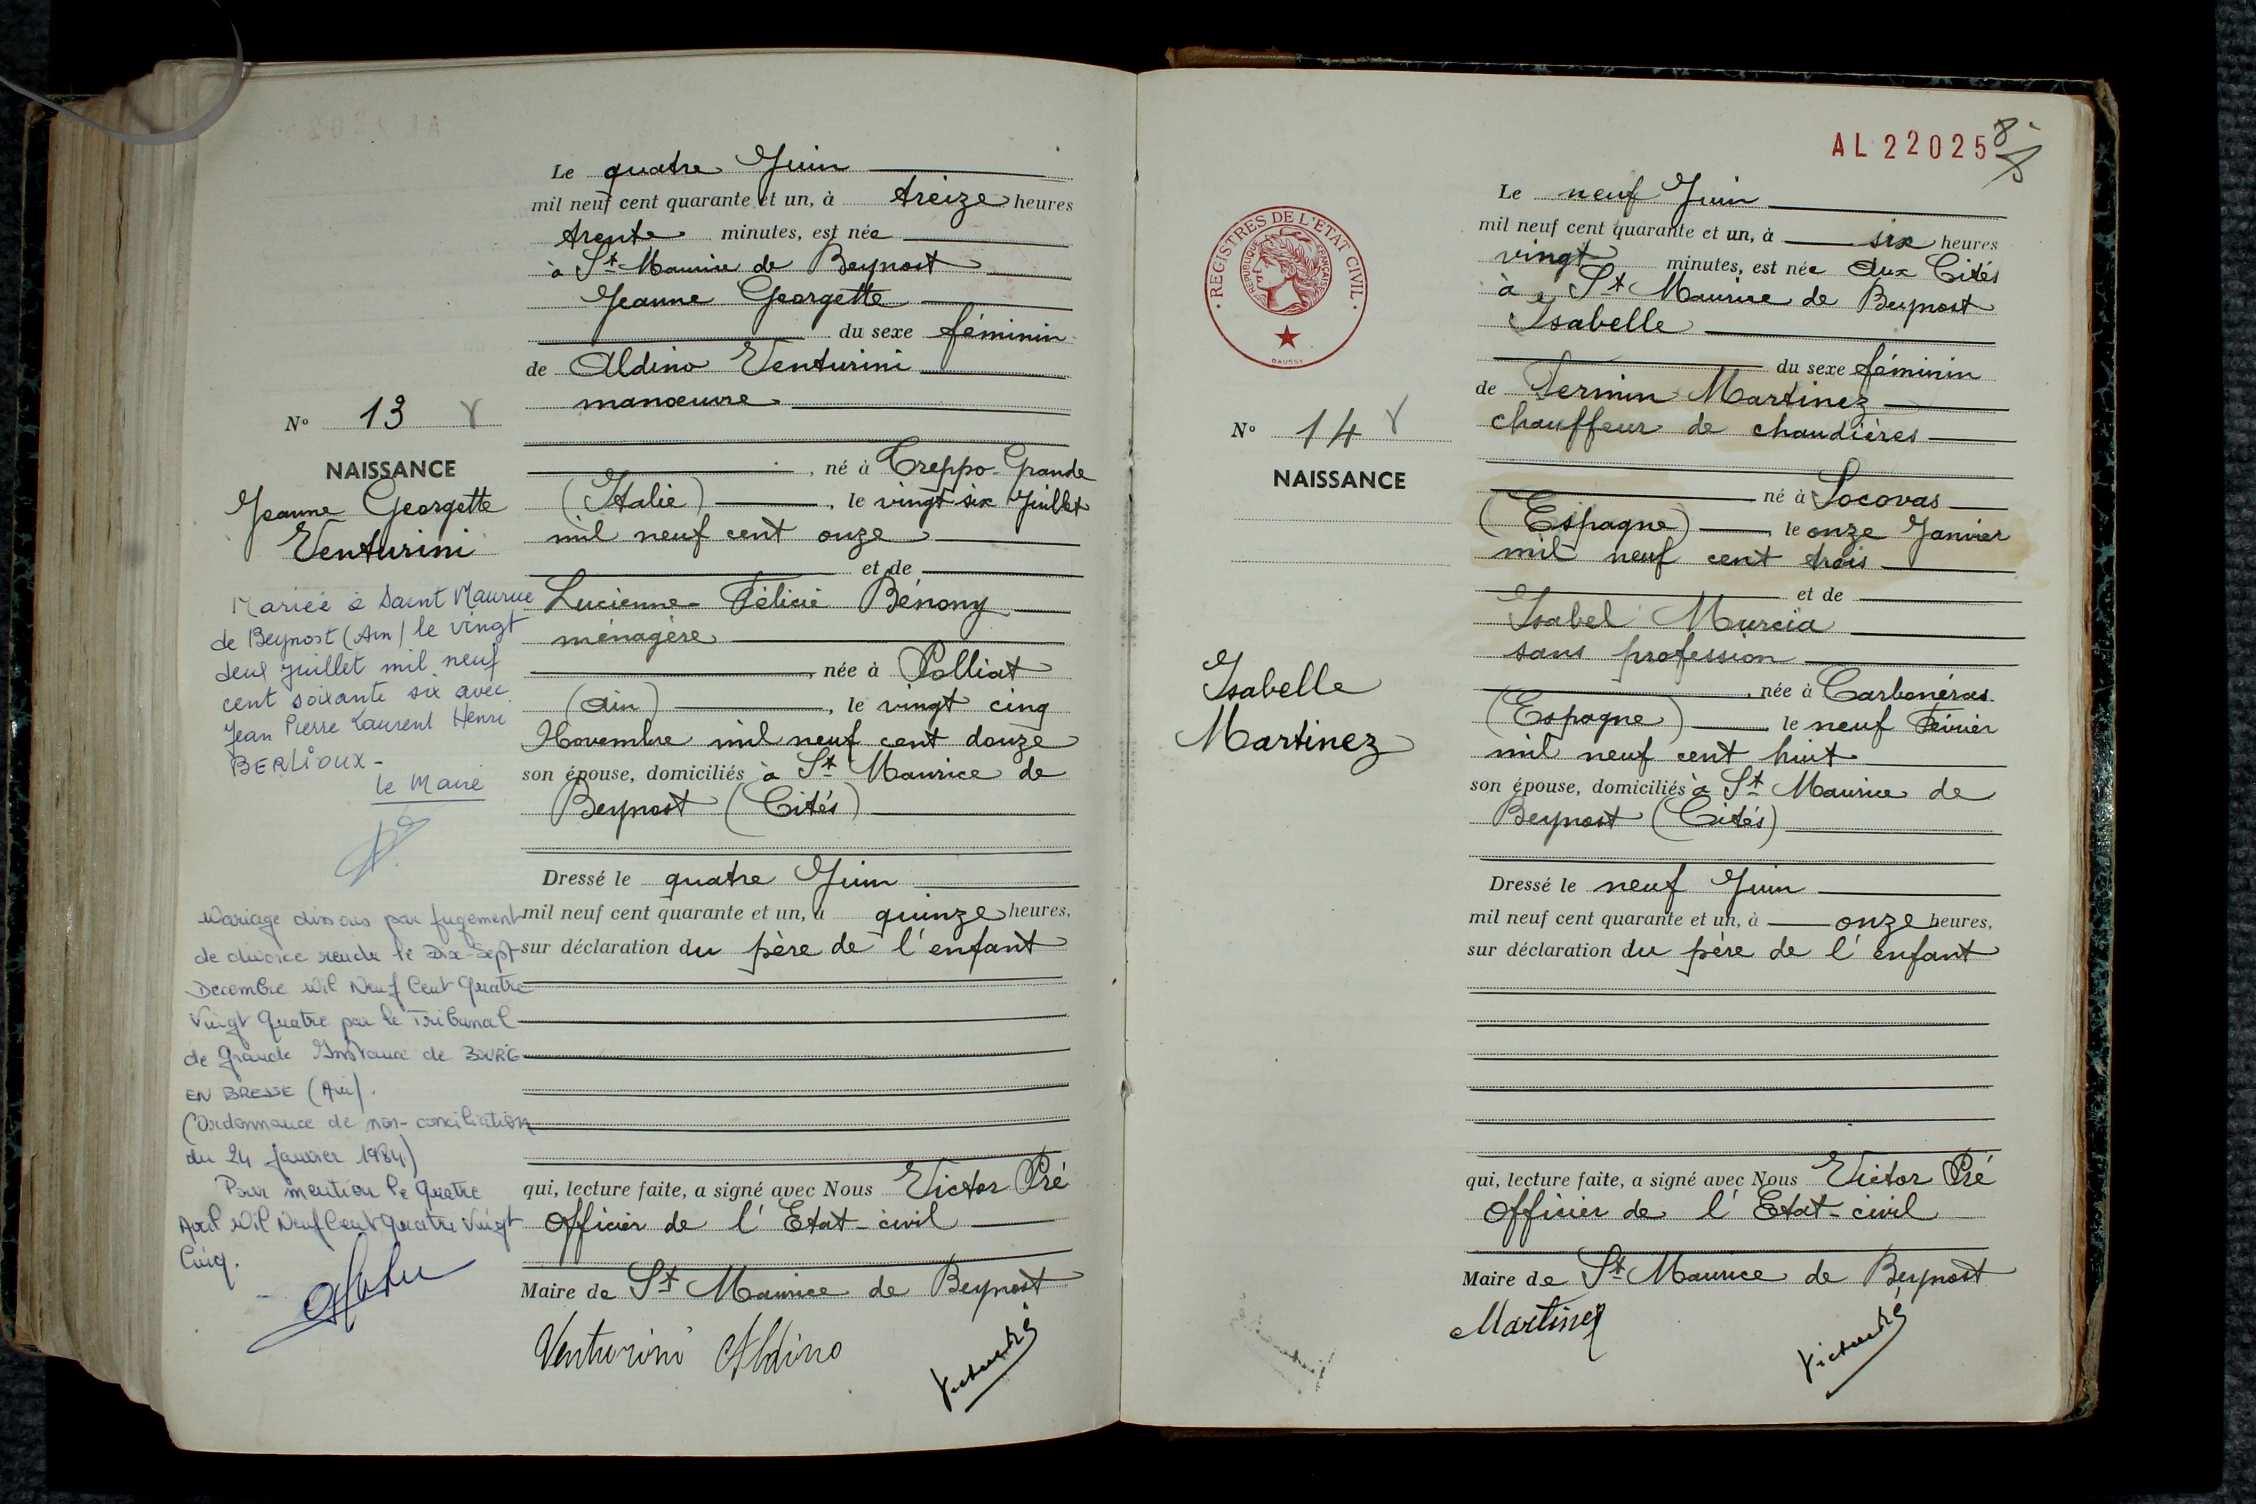 Le quatre Juin
mil neuf cent quarante et un, à treize heures
trente minutes, est née
à St Maurice de Beynost
Jeanne Georgette
du sexe féminin
de Aldino Venturini
manœuvre
, né à Treppo-Grande
(Italie), le vingt-six Juillet
mil neuf cent onze
et de
Lucienne-Félicie Bénony
ménagère
, née à Polliat
(Ain), le vingt cinq
Novembre mil neuf cent douze
son épouse, domiciliés à St Maurice de
Beynost (Cités)
Dressé le quatre Juin
mil neuf cent quarante et un, à quinze heures,
sur déclaration du père de l'enfant
qui, lecture faite, a signé avec Nous Victor Pré
Officier de l'Etat-civil
Maire de St Maurice de Beynost
Venturini Aldino
Victor Pré
No 13
NAISSANCE
Jeanne Georgette
Venturini
Mariée à Saint Maurice
de Beynost (Ain) le vingt
deux juillet mil neuf
cent soixante six avec
Jean Pierre Laurent Henri
BERLIOUX-
le Maire
Mariage dissous par jugement
de divorce rendu le Dix-Sept
Decembre Mil Neuf Cent Quatre
Vingt Quatre par le Tribunal
de Grande Instance de BOURG
EN BRESSE (Ain).
(Ordonnance de non-conciliation
du 24 Janvier 1984)
Pour mention le Quatre
Avril Mil Neuf Cent Quatre Vingt
Cinq.
AL 22025
8
REGISTRES DE L'ETAT CIVIL
REPUBLIQUE FRANÇAISE
DAUSSY
No 14
NAISSANCE
Isabelle
Martinez
Le neuf Juin
mil neuf cent quarante et un, à six heures
vingt minutes, est née aux Cités
à St Maurice de Beynost
Isabelle
du sexe féminin
de Fermin Martinez
chauffeur de chaudières
né à Socovas
(Espagne), le onze Janvier
mil neuf cent trois
et de
Isabel Murcia
sans profession
, née à Carbonéras
(Espagne) le neuf Février
mil neuf cent huit
son épouse, domiciliés à St Maurice de
Beynost (Cités)
Dressé le neuf Juin
mil neuf cent quarante et un, à onze heures,
sur déclaration du père de l'enfant
qui, lecture faite, a signé avec Nous Victor Pré
Officier de l'Etat-civil
Maire de St Maurice de Beynost
Martinez
Victor Pré